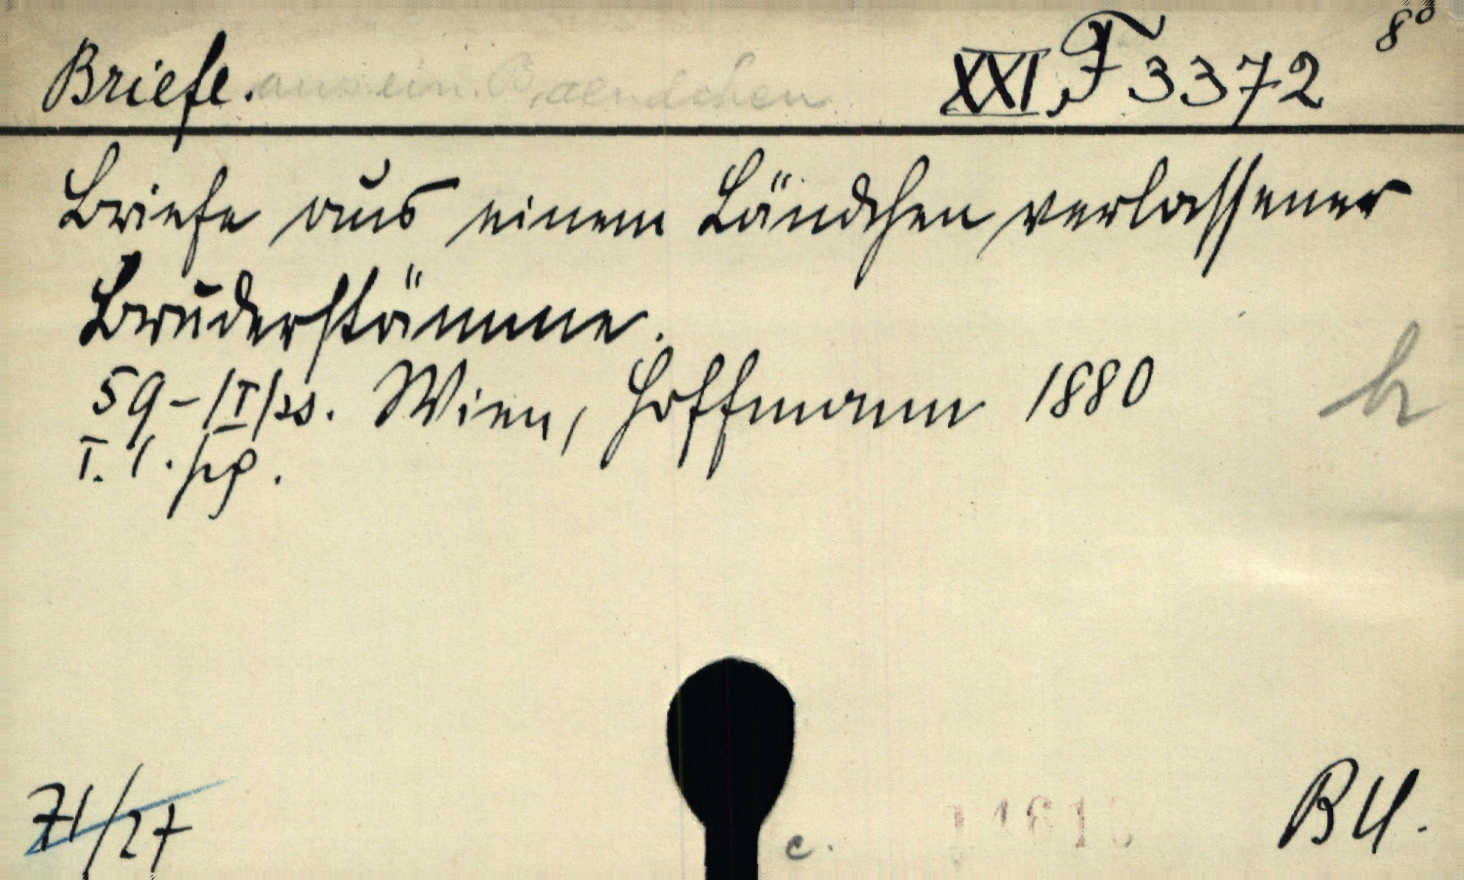 Briefe. aus ein. Baendchen XXI, F 3372 8°
Briefe aus einem Bändchen verlassener
Bruderstämme.
59-/I/ss. Wien, Hoffmann 1880
I. 1. pp.
71/27
c.
BU.